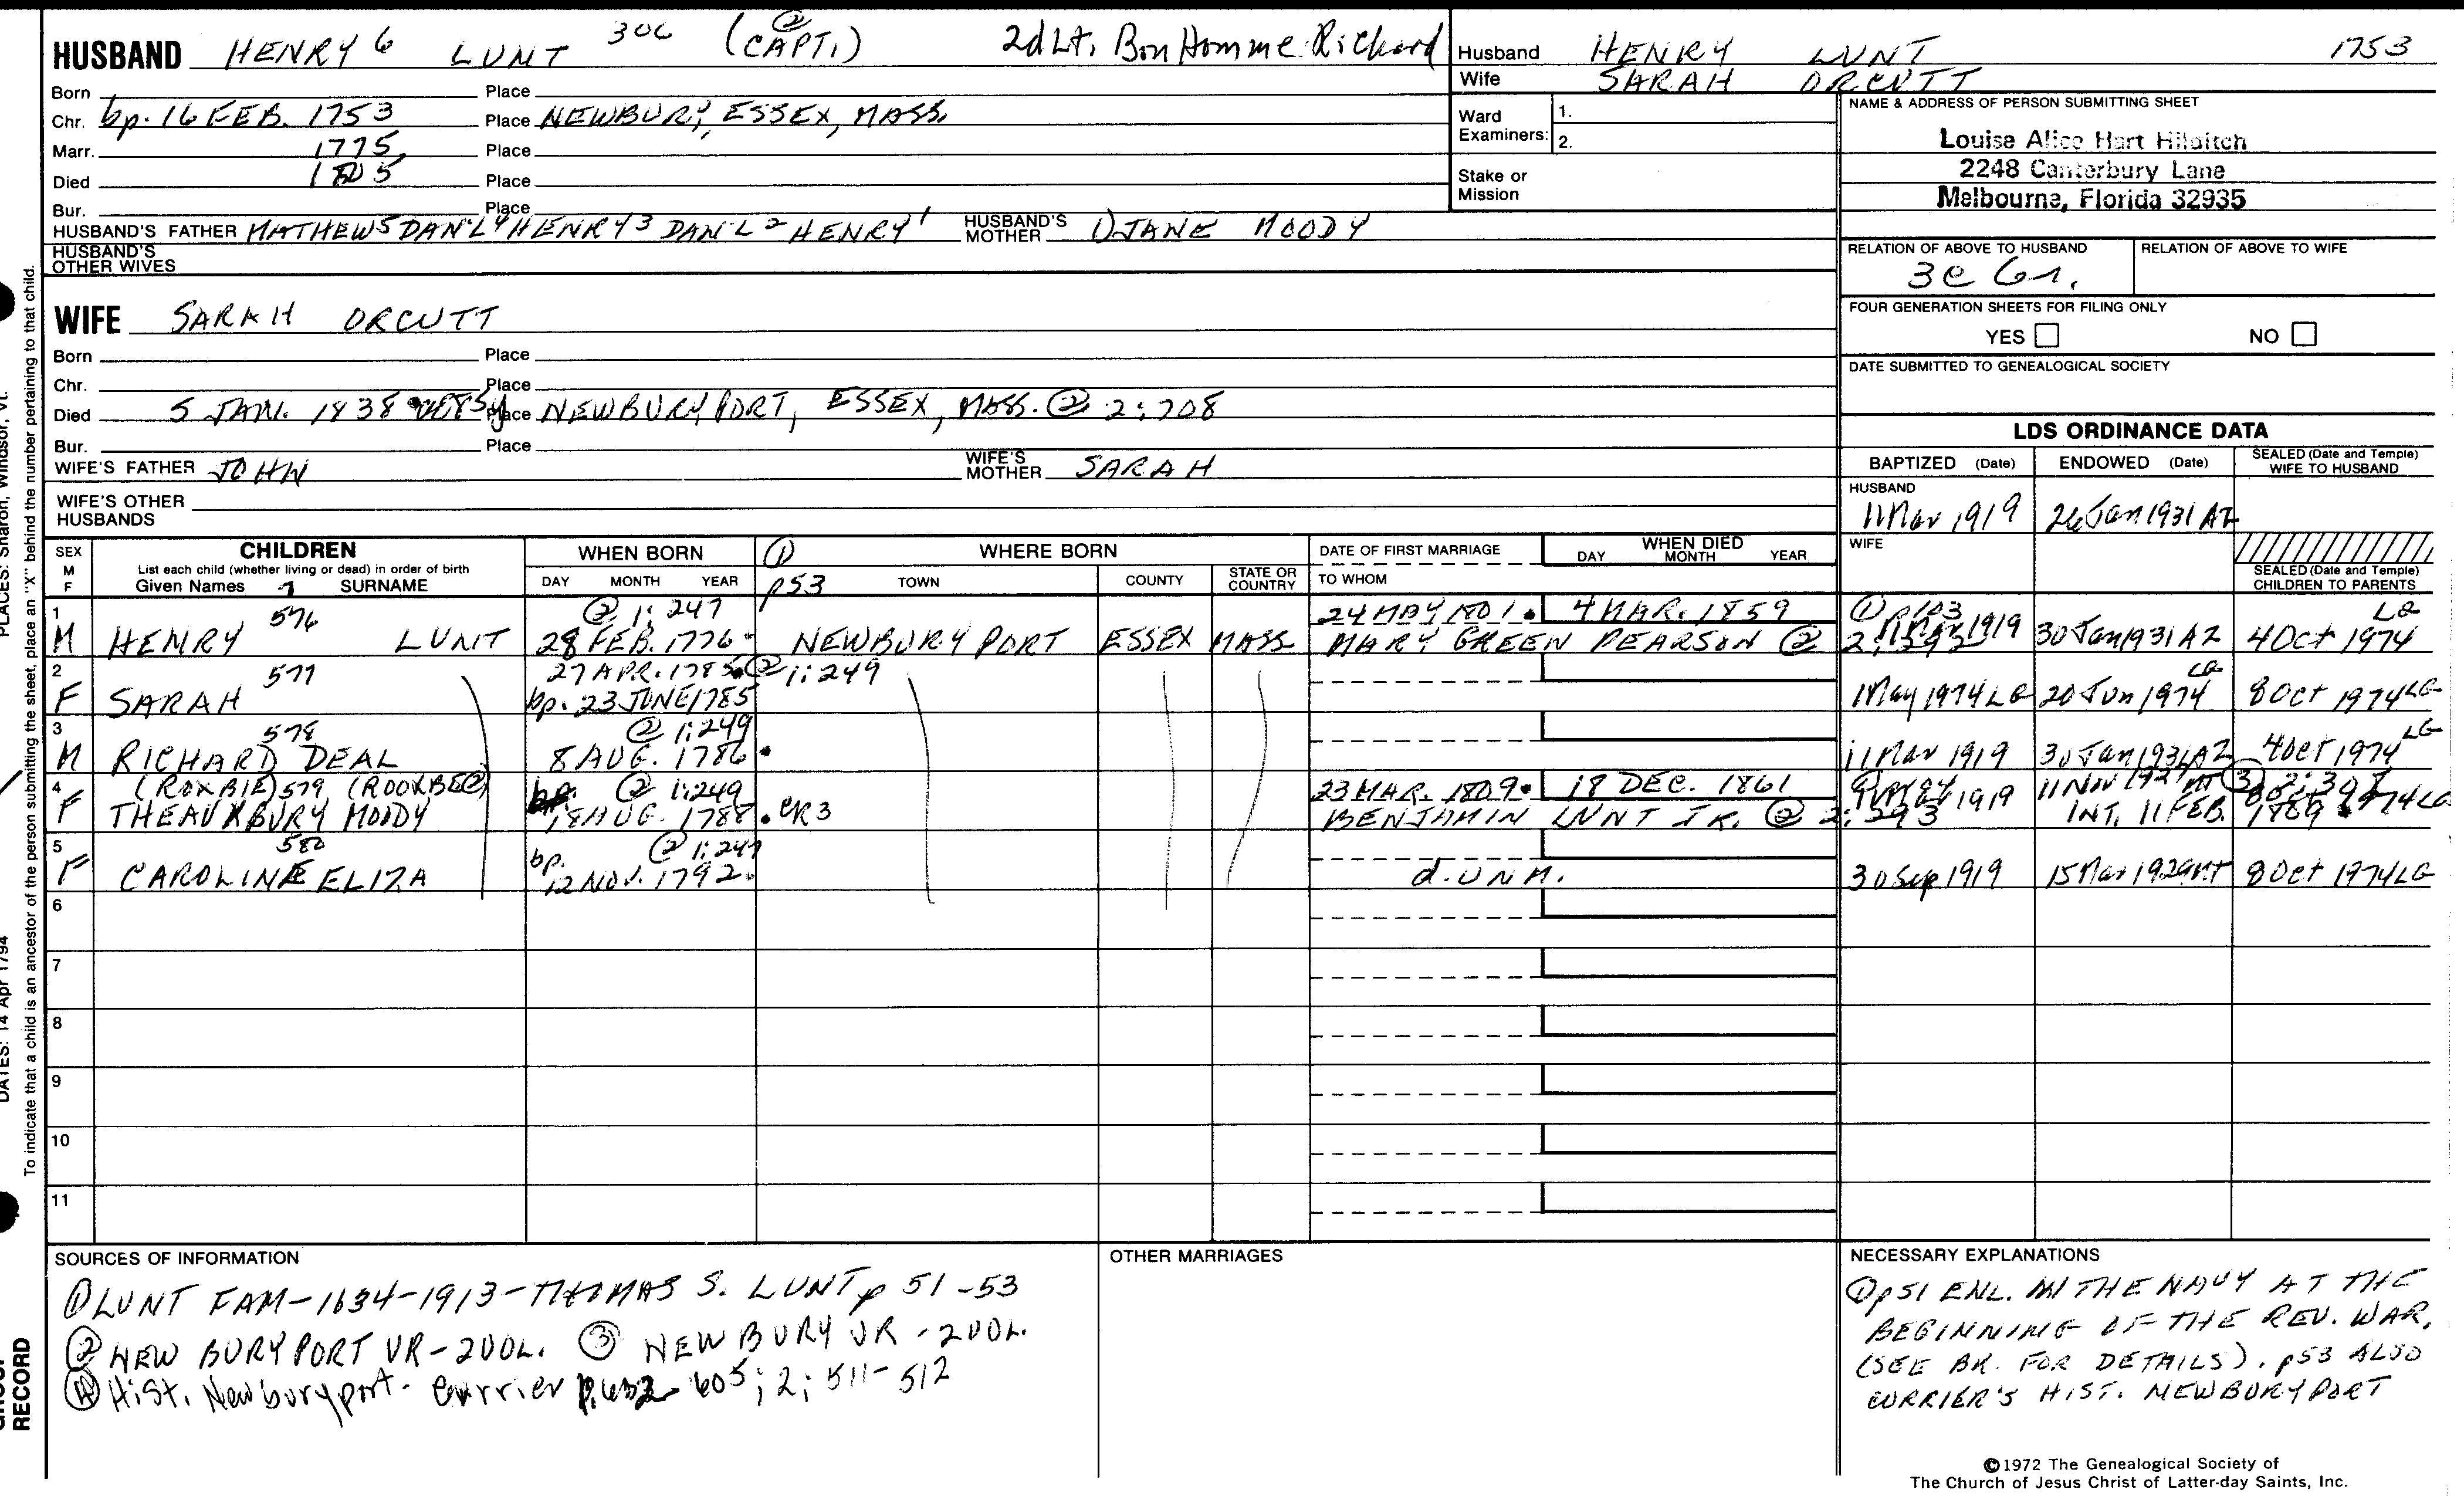 HUSBAND HENRY 6 LUNT 306 (CAPT.) ② 2d Lt. Bon Homme Richard
Born Place
Chr. bp. 16 FEB. 1753 Place NEWBURY, ESSEX, MASS.
Marr. 1775 Place
Died 1805 Place
Bur. Place
HUSBAND'S FATHER MATHEW 5 DAN'L 4 HENRY 3 DAN'L 2 HENRY 1 HUSBAND'S MOTHER ① JANE MOODY
HUSBAND'S OTHER WIVES
WIFE SARAH ORCUTT
Born Place
Chr. Place
Died 5 JAN. 1838 Place NEWBURYPORT, ESSEX, MASS. ② 2:708
Bur. Place
WIFE'S FATHER JOHN WIFE'S MOTHER SARAH
WIFE'S OTHER HUSBANDS
Husband HENRY LUNT 1753
Wife SARAH ORCUTT
Ward Examiners: 1.
2.
Stake or Mission
NAME & ADDRESS OF PERSON SUBMITTING SHEET
Louise Alice Hart Hilditch
2248 Canterbury Lane
Melbourne, Florida 32935
RELATION OF ABOVE TO HUSBAND RELATION OF ABOVE TO WIFE
FOUR GENERATION SHEETS FOR FILING ONLY
YES NO
DATE SUBMITTED TO GENEALOGICAL SOCIETY
LDS ORDINANCE DATA
BAPTIZED (Date) ENDOWED (Date) SEALED (Date and Temple) WIFE TO HUSBAND
HUSBAND
11 Mar 1919 26 Jan 1931 AZ
WIFE
SEALED (Date and Temple) CHILDREN TO PARENTS
SEX M F CHILDREN WHEN BORN ① p53 WHERE BORN DATE OF FIRST MARRIAGE WHEN DIED
List each child (whether living or dead) in order of birth
Given Names 7 SURNAME DAY MONTH YEAR TOWN COUNTY STATE OR COUNTRY TO WHOM DAY MONTH YEAR
1 576 ② 1:247 24 MAY 1801 4 MAR. 1859 ① LG
M HENRY LUNT 28 FEB. 1776 NEWBURYPORT ESSEX MASS MARY GREEN PEARSON ② 30 Jan 1931 AZ 4 Oct 1974
2 577 27 APR. 1785 ② 1:249 LG
F SARAH bp. 23 JUNE 1785 1 May 1974 LG 20 Jun 1974 8 Oct 1974 LG
3 578 ② 1:249 LG
M RICHARD DEAL 8 AUG. 1786 11 Mar 1919 30 Jan 1931 AZ 4 Oct 1974
4 (ROXBIE) 579 (ROOXBE②) ② 1:249 23 MAR. 1809 18 DEC. 1861
F THEAUXBURY MOODY 18 AUG. 1788. CR3 BENJAMIN LUNT JR. ② 2:293 INT. 11 FEB.
5 580 bp. ② 1:247
F CAROLINE ELIZA 12 NOV. 1792 d. UNM. 30 Sep 1919 15 Mar 1929 MT 8 Oct 1974 LG
6
7
8
9
10
11
SOURCES OF INFORMATION
① LUNT FAM-1634-1913-THOMAS S. LUNT p 51-53
② NEWBURYPORT VR-2VOL. ③ NEWBURY VR-2VOL.
Ⓐ Hist. Newburyport- Currier 605; 2; 511-512
OTHER MARRIAGES
NECESSARY EXPLANATIONS
① p51 ENL. IN THE NAVY AT THE
BEGINNING OF THE REV. WAR,
(SEE BK. FOR DETAILS). p53 ALSO
CURRIER'S HIST. NEWBURYPORT
©1972 The Genealogical Society of
The Church of Jesus Christ of Latter-day Saints, Inc.
To indicate that a child is an ancestor of the person submitting the sheet, place an "X" behind the number pertaining to that child.
PLACES: Sharon, Windsor, Vt.
DATES: 14 Apr 1794
GROUP RECORD